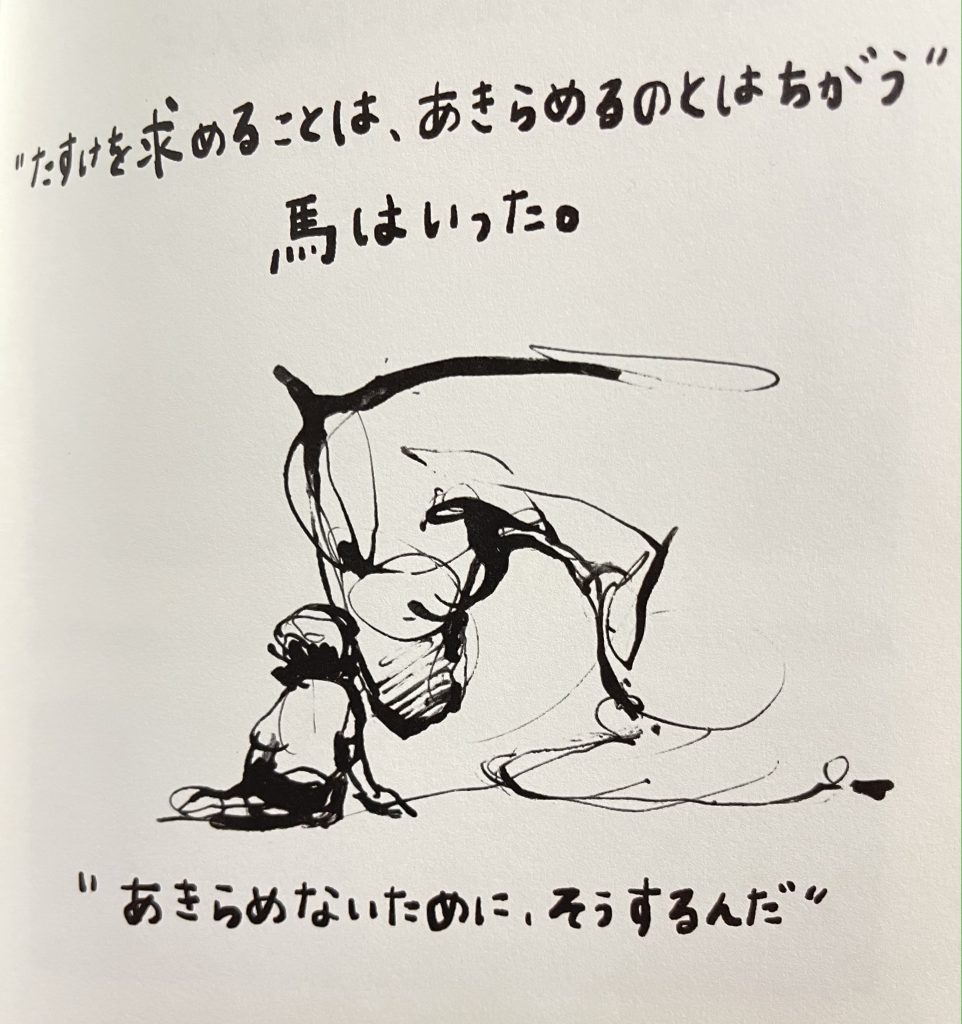 "たすけを求めることは、あきらめるのとはちがう"
馬はいった。
"あきらめないために、そうするんだ"